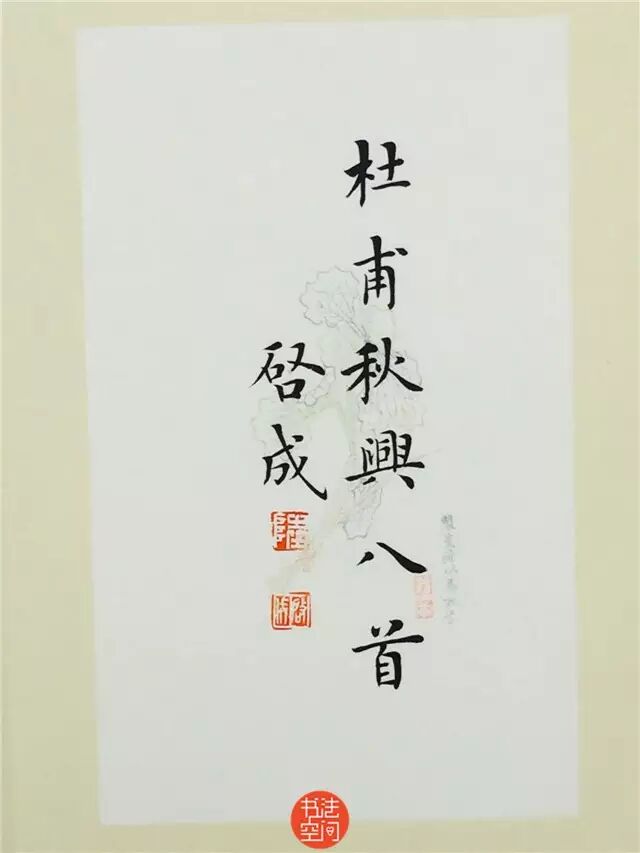 杜甫秋興八首
啓成
书法
空间